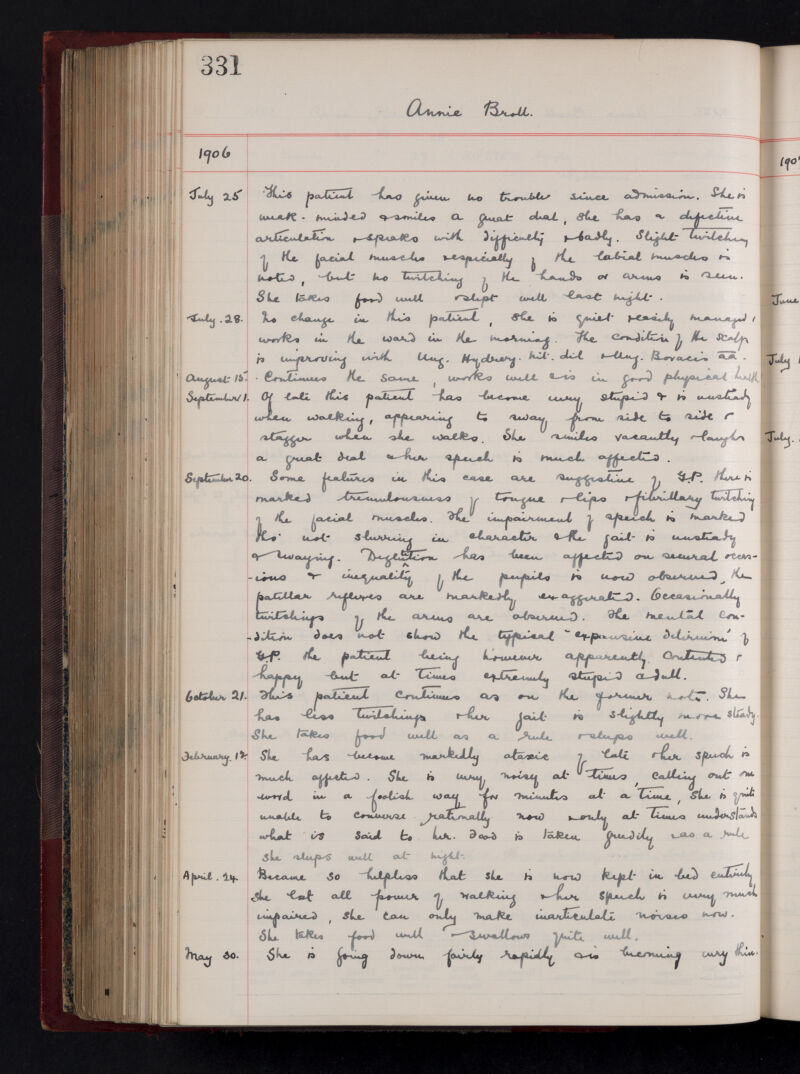 331
Annie Broll.
1906
July 25 This patient has given no trouble since admission. She is
weak-minded & smiles a great deal, she has a defective
articulation & speaks with difficulty & badly. Slight twitching
of the facial muscles & especially of the labial muscles is
noted, but no twitching of the hands or arms is seen.
She takes food well & slept well last night.
July. 28. No change in this patient, she is quiet & easily managed,
works in the ward in the morning. The condition of the scalp
is improving with Ung. Hydrarg. nit. dil & Ung. Boracis āā.
August 15. Continues the same, works well & is in good physical health
September 1. Of late this patient has become very stupid & is unsteady
when walking, appearing to sway from side to side &
stagger when she walks. She smiles vacantly & laughs
a great deal & her speech is much affected.
September 20. Some features in this case are suggestive of G.P. there is
marked tremulousness of tongue & lips & fibrillary twitching
of the facial muscles. The impairment of speech is marked
tho' not slurring in character & the gait is unsteady
& swaying. Deglutition has been affected on several occas-
-ions & inequality of the pupils is now observed, the
patellar reflexes are markedly exaggerated. Occasionally
twitchings of the arms are observed. The mental con-
-dition does not show the typical "expansive delirium" of
G.P. the patient being however apparently contented &
happy but at times extremely stupid & dull.
October 21. This patient continues as on the former note. She
has less twitchings & her gait is slightly more steady.
She takes food well as a rule & sleeps well.
February. 12. She has become markedly ataxic of late & her speech is
much affected. She is very noisy at times, calling out one
word in a foolish way for minutes at a time, she is quite
unable to converse rationally now & only at times understands
what is said to her. Food is taken greedily & as a rule
she sleeps well at night.
April. 24. Became so helpless that she is now kept in bed entirely
she lost all power of walking & her speech is very much
impaired, she can only make inarticulate noises now.
She takes food well & swallows quite well.
May 30. She is going down fairly rapidly & is becoming very thin.
190
June
July 1
July.